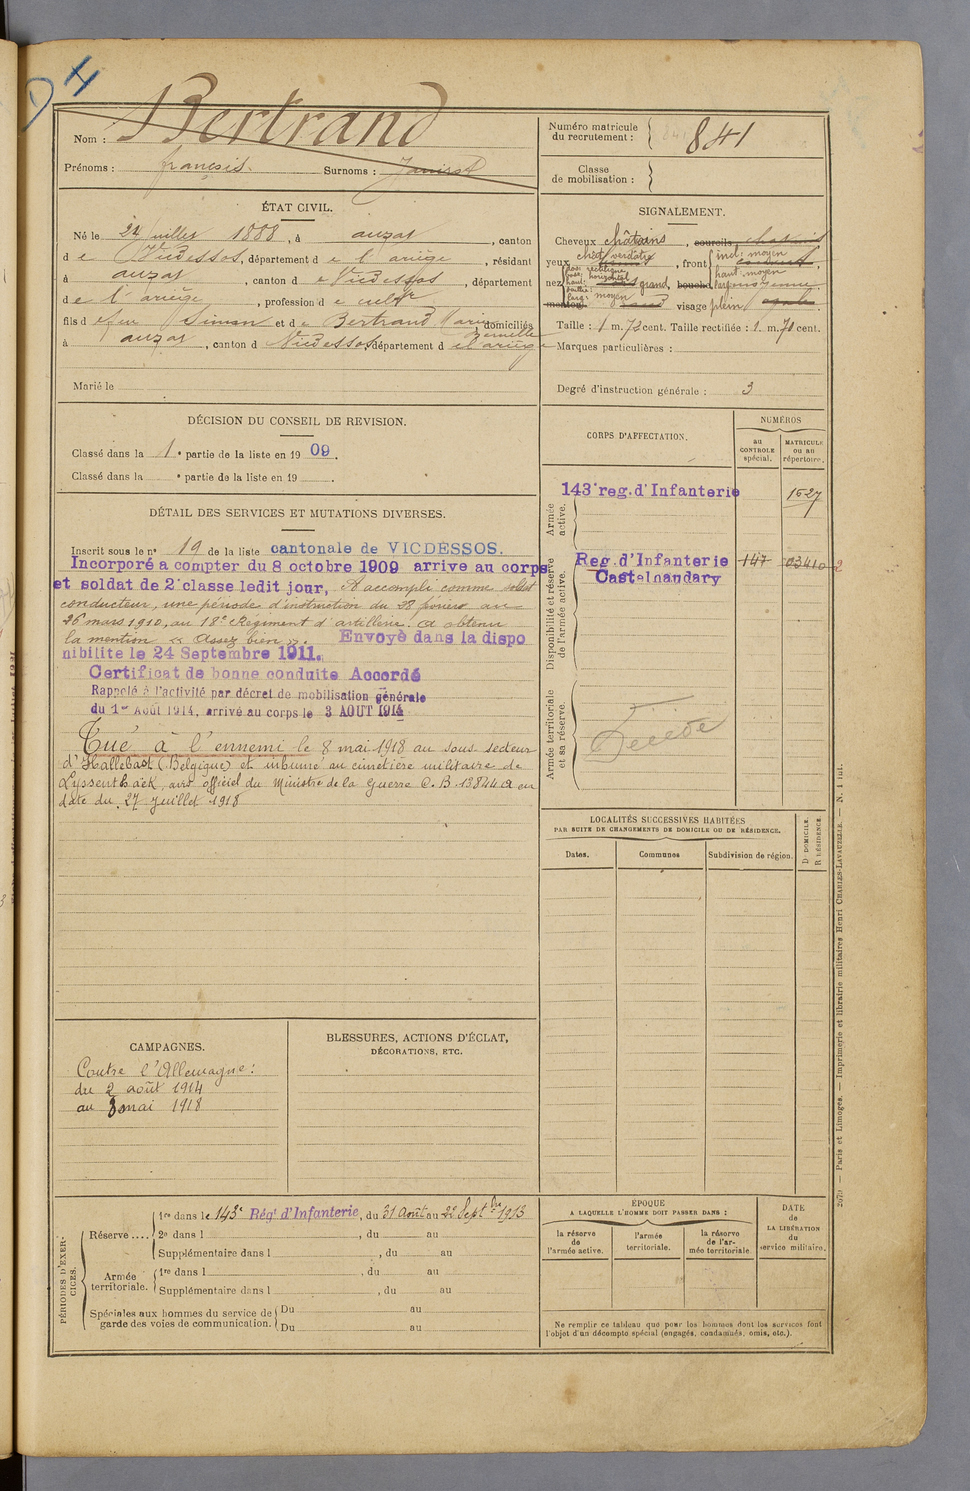 Nom : Bertrand
Prénoms : françois. Surnoms :
Numéro matricule
du recrutement : 841
Classe
de mobilisation :
ÉTAT CIVIL.
Né le 24 juillet 1888, à auzat, canton
de Vicdessos, département de l'ariège, résidant
à auzat, canton de Vicdessos, département
de l'ariège, profession de cultr
fils de feu Simon et de Bertrand Marie domiciliés
à auzat, canton d Vicdessos, département d el'ariège
Marié le
SIGNALEMENT.
Cheveux châtains, sourcils
yeux, front incl: moyen
haut: moyen
nez grand, bouche larg: moyenne
menton visage plein
Taille : 1 m. 72 cent. Taille rectifiée : 1. m. 70 cent.
Marques particulières :
Degré d'instruction générale : 3
DÉCISION DU CONSEIL DE REVISION.
Classé dans la 1e partie de la liste en 1909.
Classé dans la e partie de la liste en 19 .
DÉTAIL DES SERVICES ET MUTATIONS DIVERSES.
Inscrit sous le n° 19 de la liste cantonale de VICDESSOS.
Incorporé a compter du 8 octobre 1909 arrive au corps
et soldat de 2e classe ledit jour, A accompli comme soldat
conducteur, une période d'instruction du 28 février au
26 mars 1910, au 18e Régiment d'artillerie. a obtenu
la mention « assez bien ». Envoyé dans la dispo
nibilite le 24 Septembre 1911.
Certificat de bonne conduite Accordé
Rappelé à l'activité par décret de mobilisation générale
du 1er Août 1914, arrivé au corps le 3 AOUT 1914
Tué à l'ennemi le 8 mai 1918 au sous secteur
d'Hallebast (Belgique) et inhumé au cimetière militaire de
Lyssenthœk, avis officiel du Ministre de la Guerre C. B. 13844 a en
date du 27 juillet 1918
CORPS D'AFFECTATION.
NUMÉROS
au
CONTROLE
spécial.
MATRICULE
ou au
répertoire.
Armée
active.
143e reg. d'Infanterie 1527
Disponibilité et réserve
de l'armée active.
Reg. d'Infanterie 147 03410
Castelnaudary
Armée territoriale
et sa réserve.
Décédé
LOCALITÉS SUCCESSIVES HABITÉES
PAR SUITE DE CHANGEMENTS DE DOMICILE OU DE RÉSIDENCE.
Dates. Communes Subdivision de région.
D. DOMICILE.
R. RÉSIDENCE.
CAMPAGNES.
Contre l'Allemagne :
du 2 août 1914
au 8 mai 1918
BLESSURES, ACTIONS D'ÉCLAT,
DÉCORATIONS, ETC.
PÉRIODES D'EXER-
CICES.
Réserve .... 1re dans le 143e Régt d'Infanterie, du 31 Août au 22 Septbre 1913
2e dans l , du au
Supplémentaire dans l , du au
Armée
territoriale. 1re dans l , du au
Supplémentaire dans l , du au
Spéciales aux hommes du service de
garde des voies de communication. Du au
Du au
ÉPOQUE
A LAQUELLE L'HOMME DOIT PASSER DANS :
la réserve
de
l'armée active.
l'armée
territoriale.
la réserve
de l'ar-
mée territoriale.
DATE
de
LA LIBÉRATION
du
service militaire.
Ne remplir ce tableau que pour les hommes dont les services font
l'objet d'un décompte spécial (engagés, condamnés, omis, etc.).
Paris et Limoges. — Imprimerie et librairie militaires Henri CHARLES-LAVAUZELLE. —